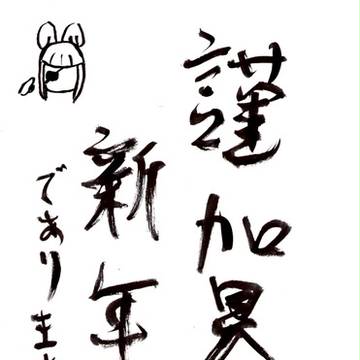 謹賀
新年
でありま